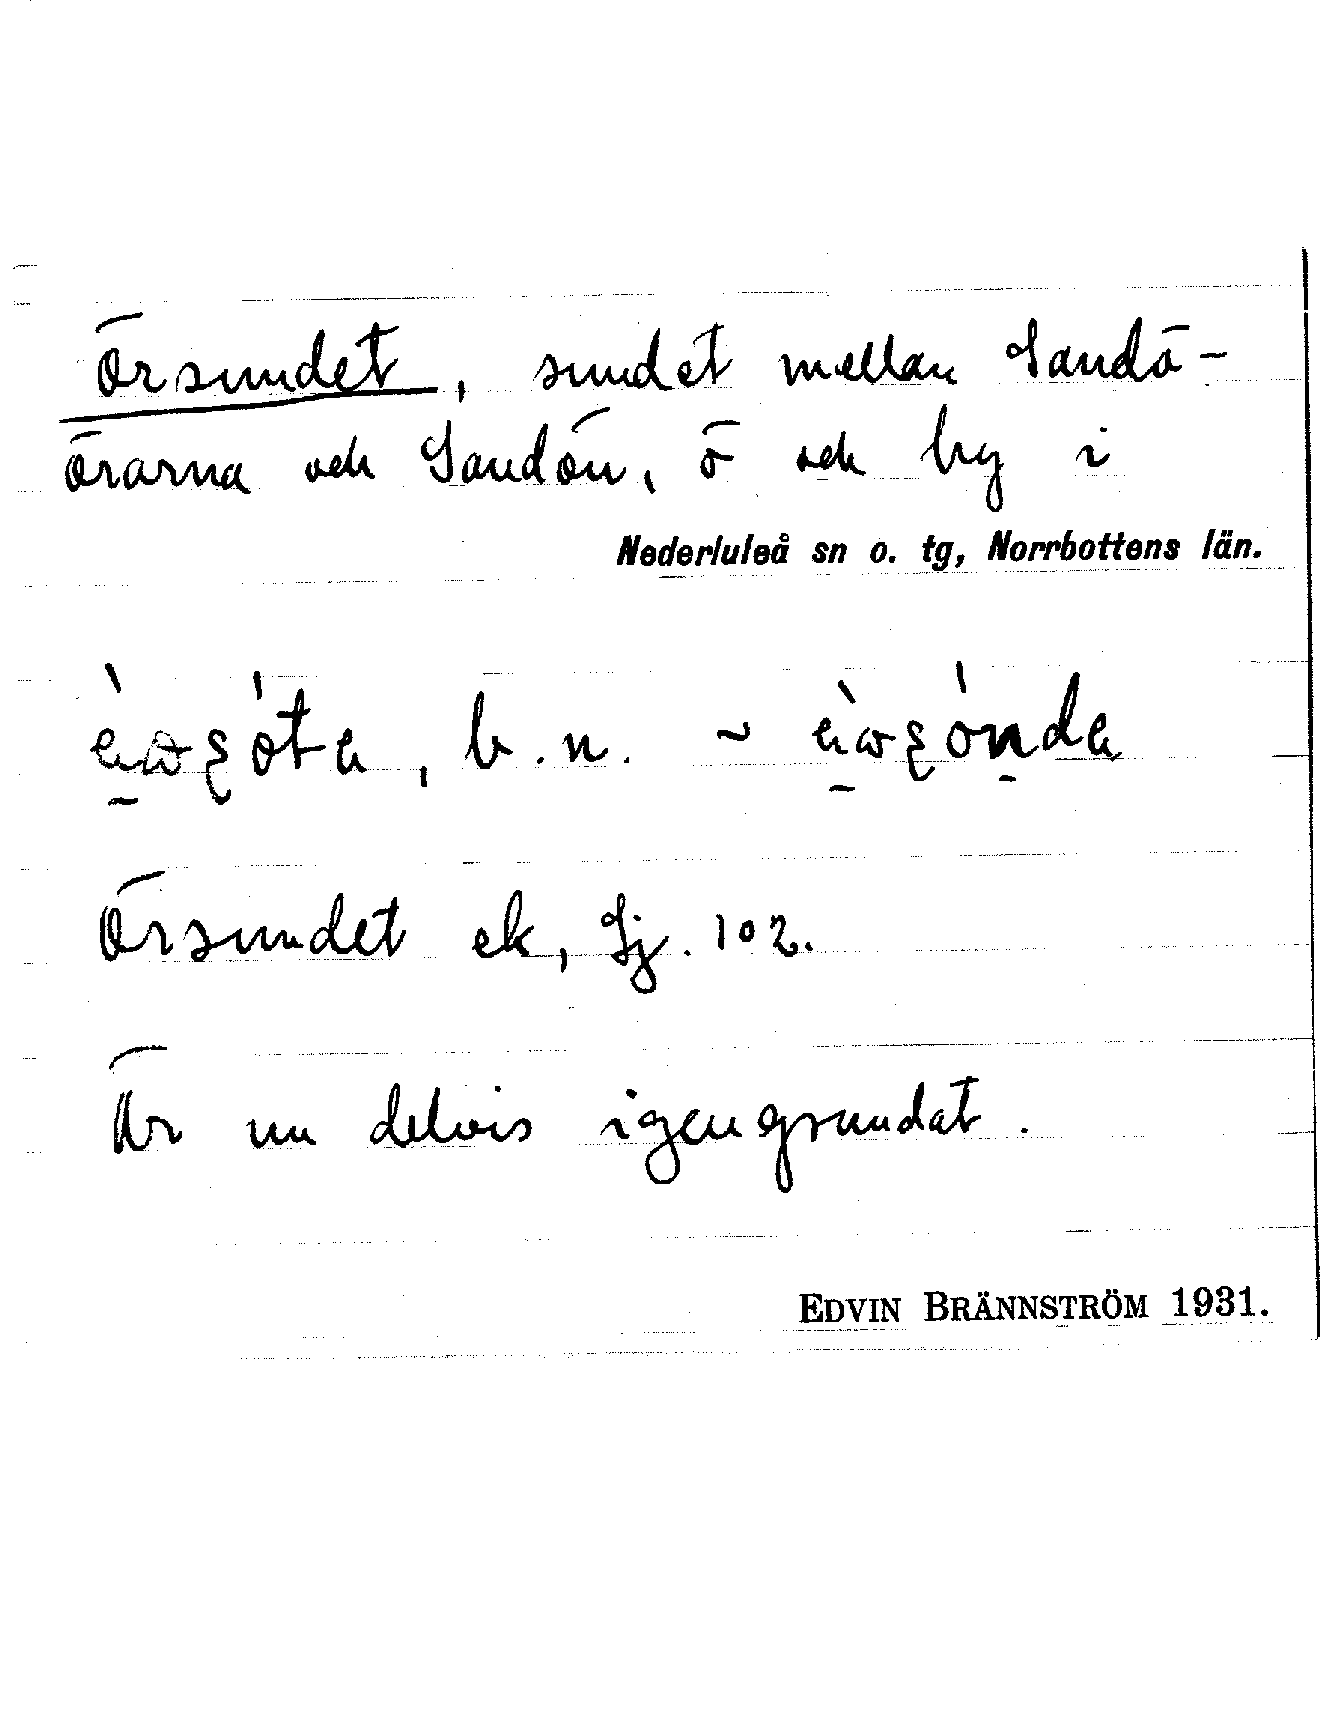 Örsundet, sundet mellan Sandö-
örarna och Sandön, ö och by i
Nederluleå sn o. tg, Norrbottens län.
b.n. ~
Örsundet ek, Sj. 102.
Är nu delvis igengrundat.
EDVIN BRÄNNSTRÖM 1931.